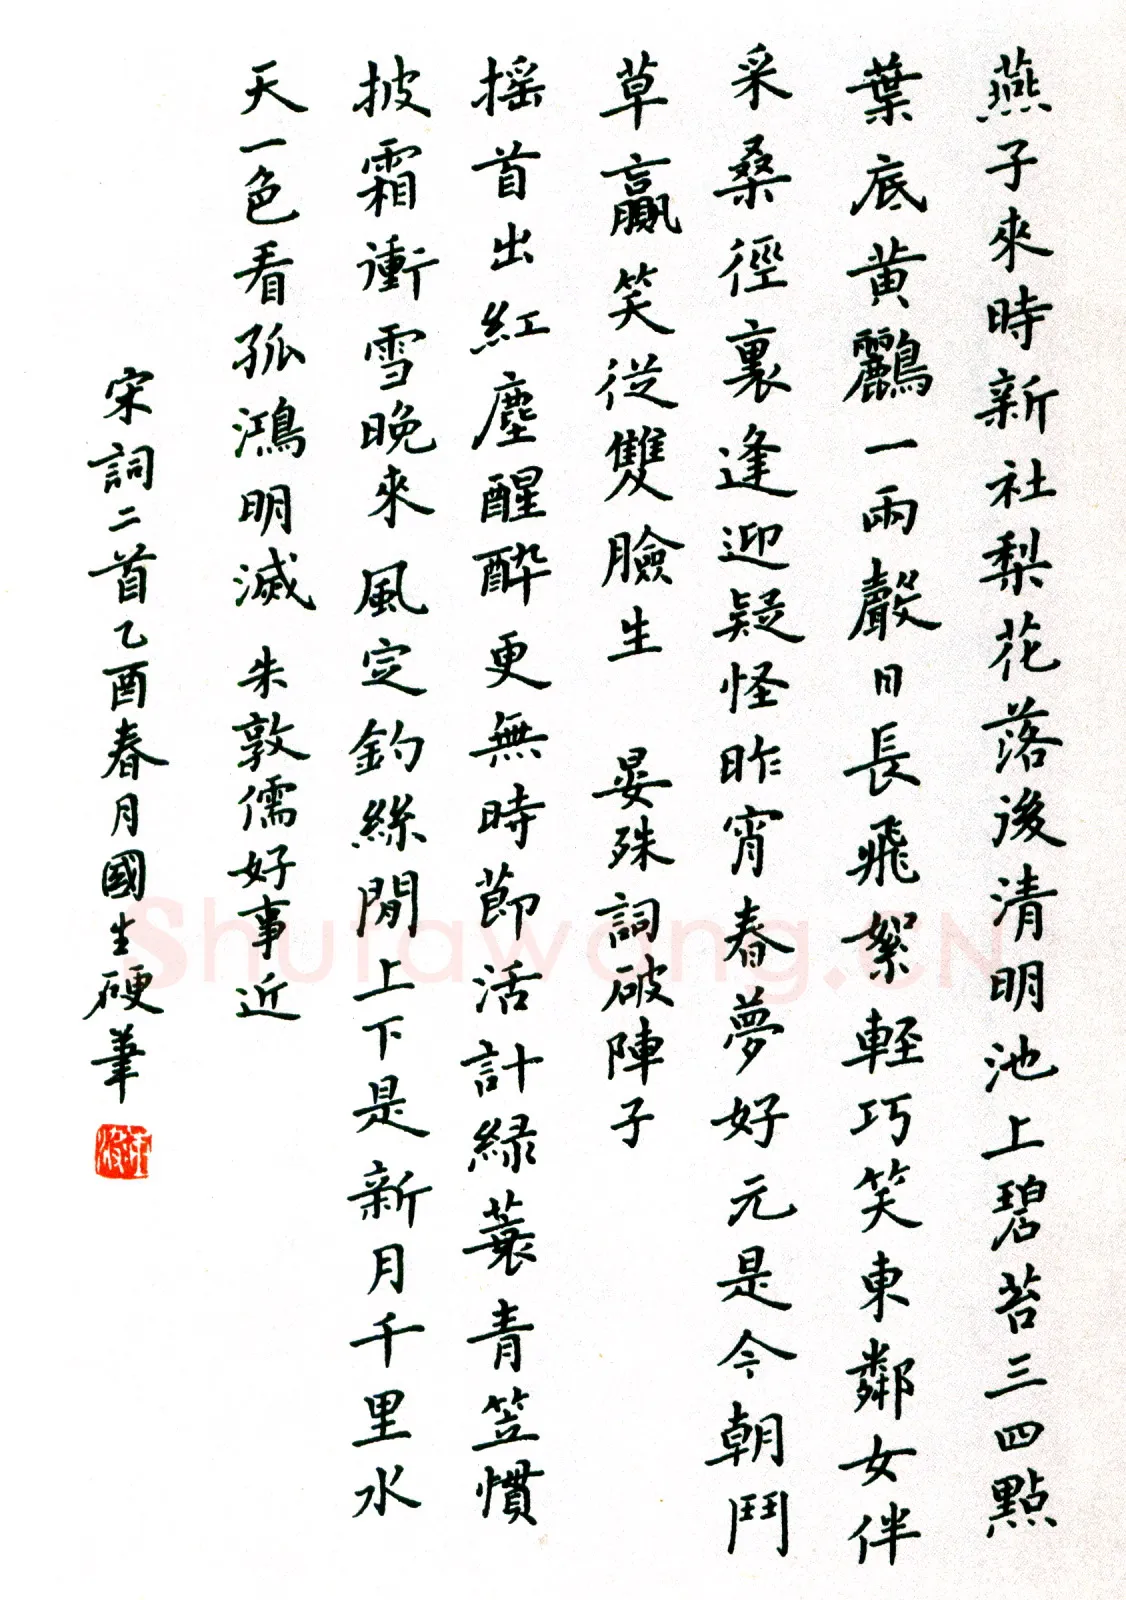 燕子來時新社梨花落後清明池上碧苔三四點
葉底黄鸝一兩聲日長飛絮輕巧笑東鄰女伴
采桑徑裏逢迎疑怪昨宵春夢好元是今朝鬥
草贏笑從雙臉生 晏殊詞破陣子
摇首出紅塵醒醉更無時節活計緑蓑青笠慣
披霜衝雪晚來風定釣絲閒上下是新月千里水
天一色看孤鴻明滅 朱敦儒好事近
宋詞二首乙酉春月國生硬筆
Shufawang.CN